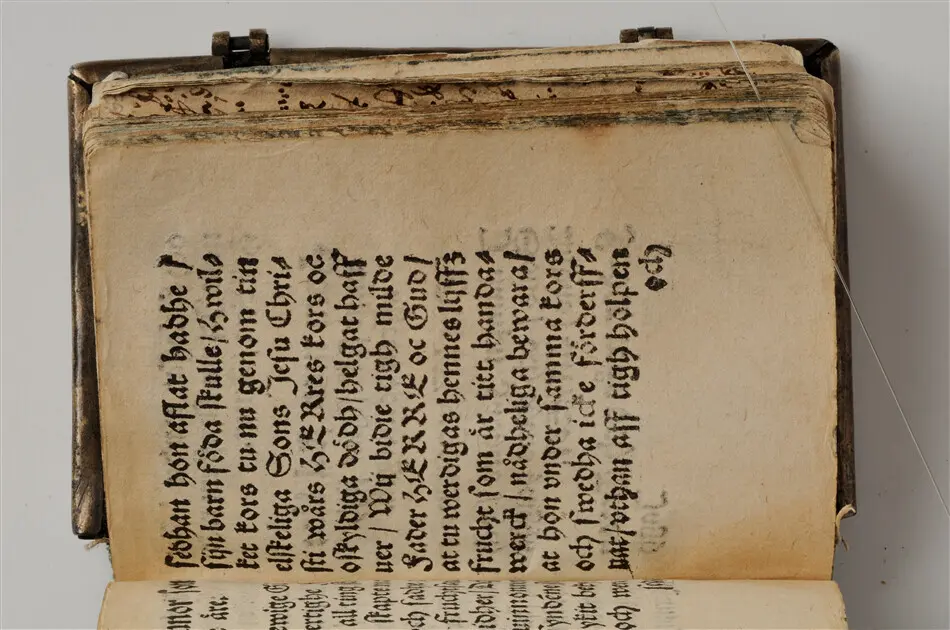 sedhan hon aflat hadhe /
sijn barn föda skulle / hwil⸗
ket kors tu nu genom tin
elskeliga Sons Jesu Chri⸗
sti wårs HERres kors oc
oskyldiga dödh / helgat haff
uer / Wij bidie tigh milde
Fader HERRE oc Gud /
at tu werdigas hennes lijffz
frucht som är titt handa⸗
werck / nådheliga bewara /
at hon vnder samma kors
och swedha icke förderff⸗
uat / vthan aff tigh holpen
och